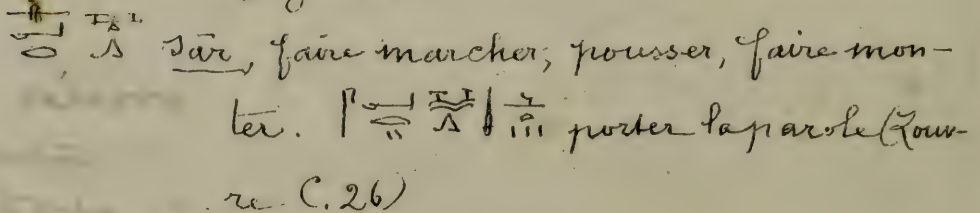 sār, faire marcher; pousser, faire mon-
ter. porter la parole (Louv-
re C. 26)